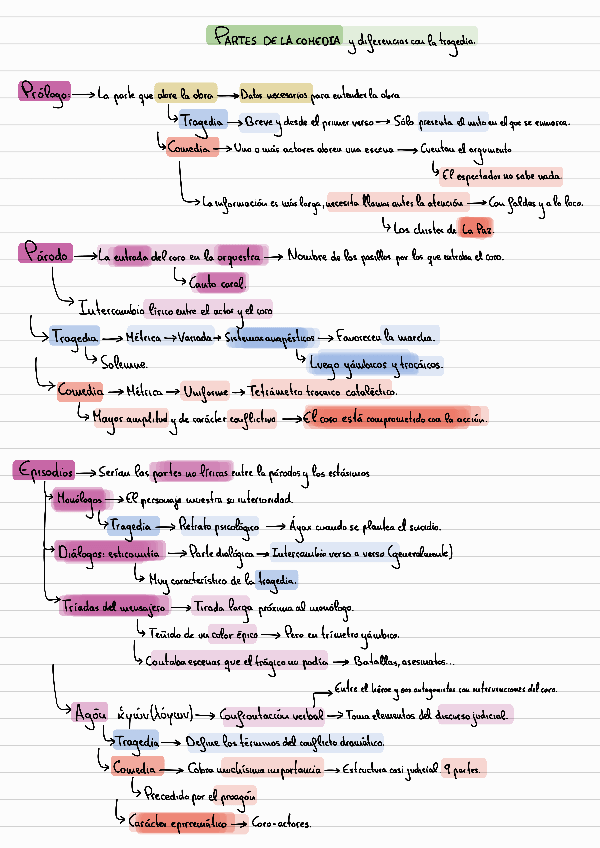 PARTES DE LA COMEDIA y diferencias con la tragedia.
Prólogo: → La parte que abre la obra → Datos necesarios para entender la obra
Tragedia → Breve y desde el primer verso → Sólo presenta el mito en el que se enmarca.
Comedia → Uno o más actores abren una escena → Cuentan el argumento
El espectador no sabe nada.
La información es más larga, necesita llamar antes la atención → Con faldas y a lo loco.
Los chistes de La Paz.
Párodo → La entrada del coro en la orquestra → Nombre de los pasillos por los que entraba el coro.
Canto coral.
Intercambio lírico entre el actor y el coro
Tragedia → Métrica → Variada → Sistemas anapésticos → Favorecen la marcha.
Solemne. Luego yámbicos y trocaicos.
Comedia → Métrica → Uniforme → Tetrámetro trocaico cataléctico.
Mayor amplitud y de carácter conflictivo → El coro está comprometido con la acción.
Episodios → Serían las partes no líricas entre la párodos y los estásimos
Monólogos → El personaje muestra su interioridad.
Tragedia → Retrato psicológico → Áyax cuando se plantea el suicidio.
Diálogos: esticomitia → Parte dialógica → Intercambio verso a verso (generalmente)
Muy característico de la tragedia.
Tríadas del mensajero → Tirada larga próxima al monólogo.
Teñido de un color épico → Pero en trímetro yámbico.
Contaba escenas que el trágico no podía → Batallas, asesinatos...
Entre el héroe y sus antagonistas con intervenciones del coro.
Agón ἀγών (λόγων) → Confrontación verbal → Toma elementos del discurso judicial.
Tragedia → Define los términos del conflicto dramático.
Comedia → Cobra muchísima importancia → Estructura casi judicial 9 partes.
Precedido por el proagón
Carácter epirremático → Coro-actores.